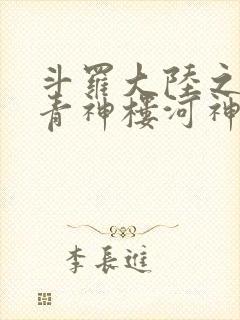 斗羅大陸之
青神樓河神
李長進